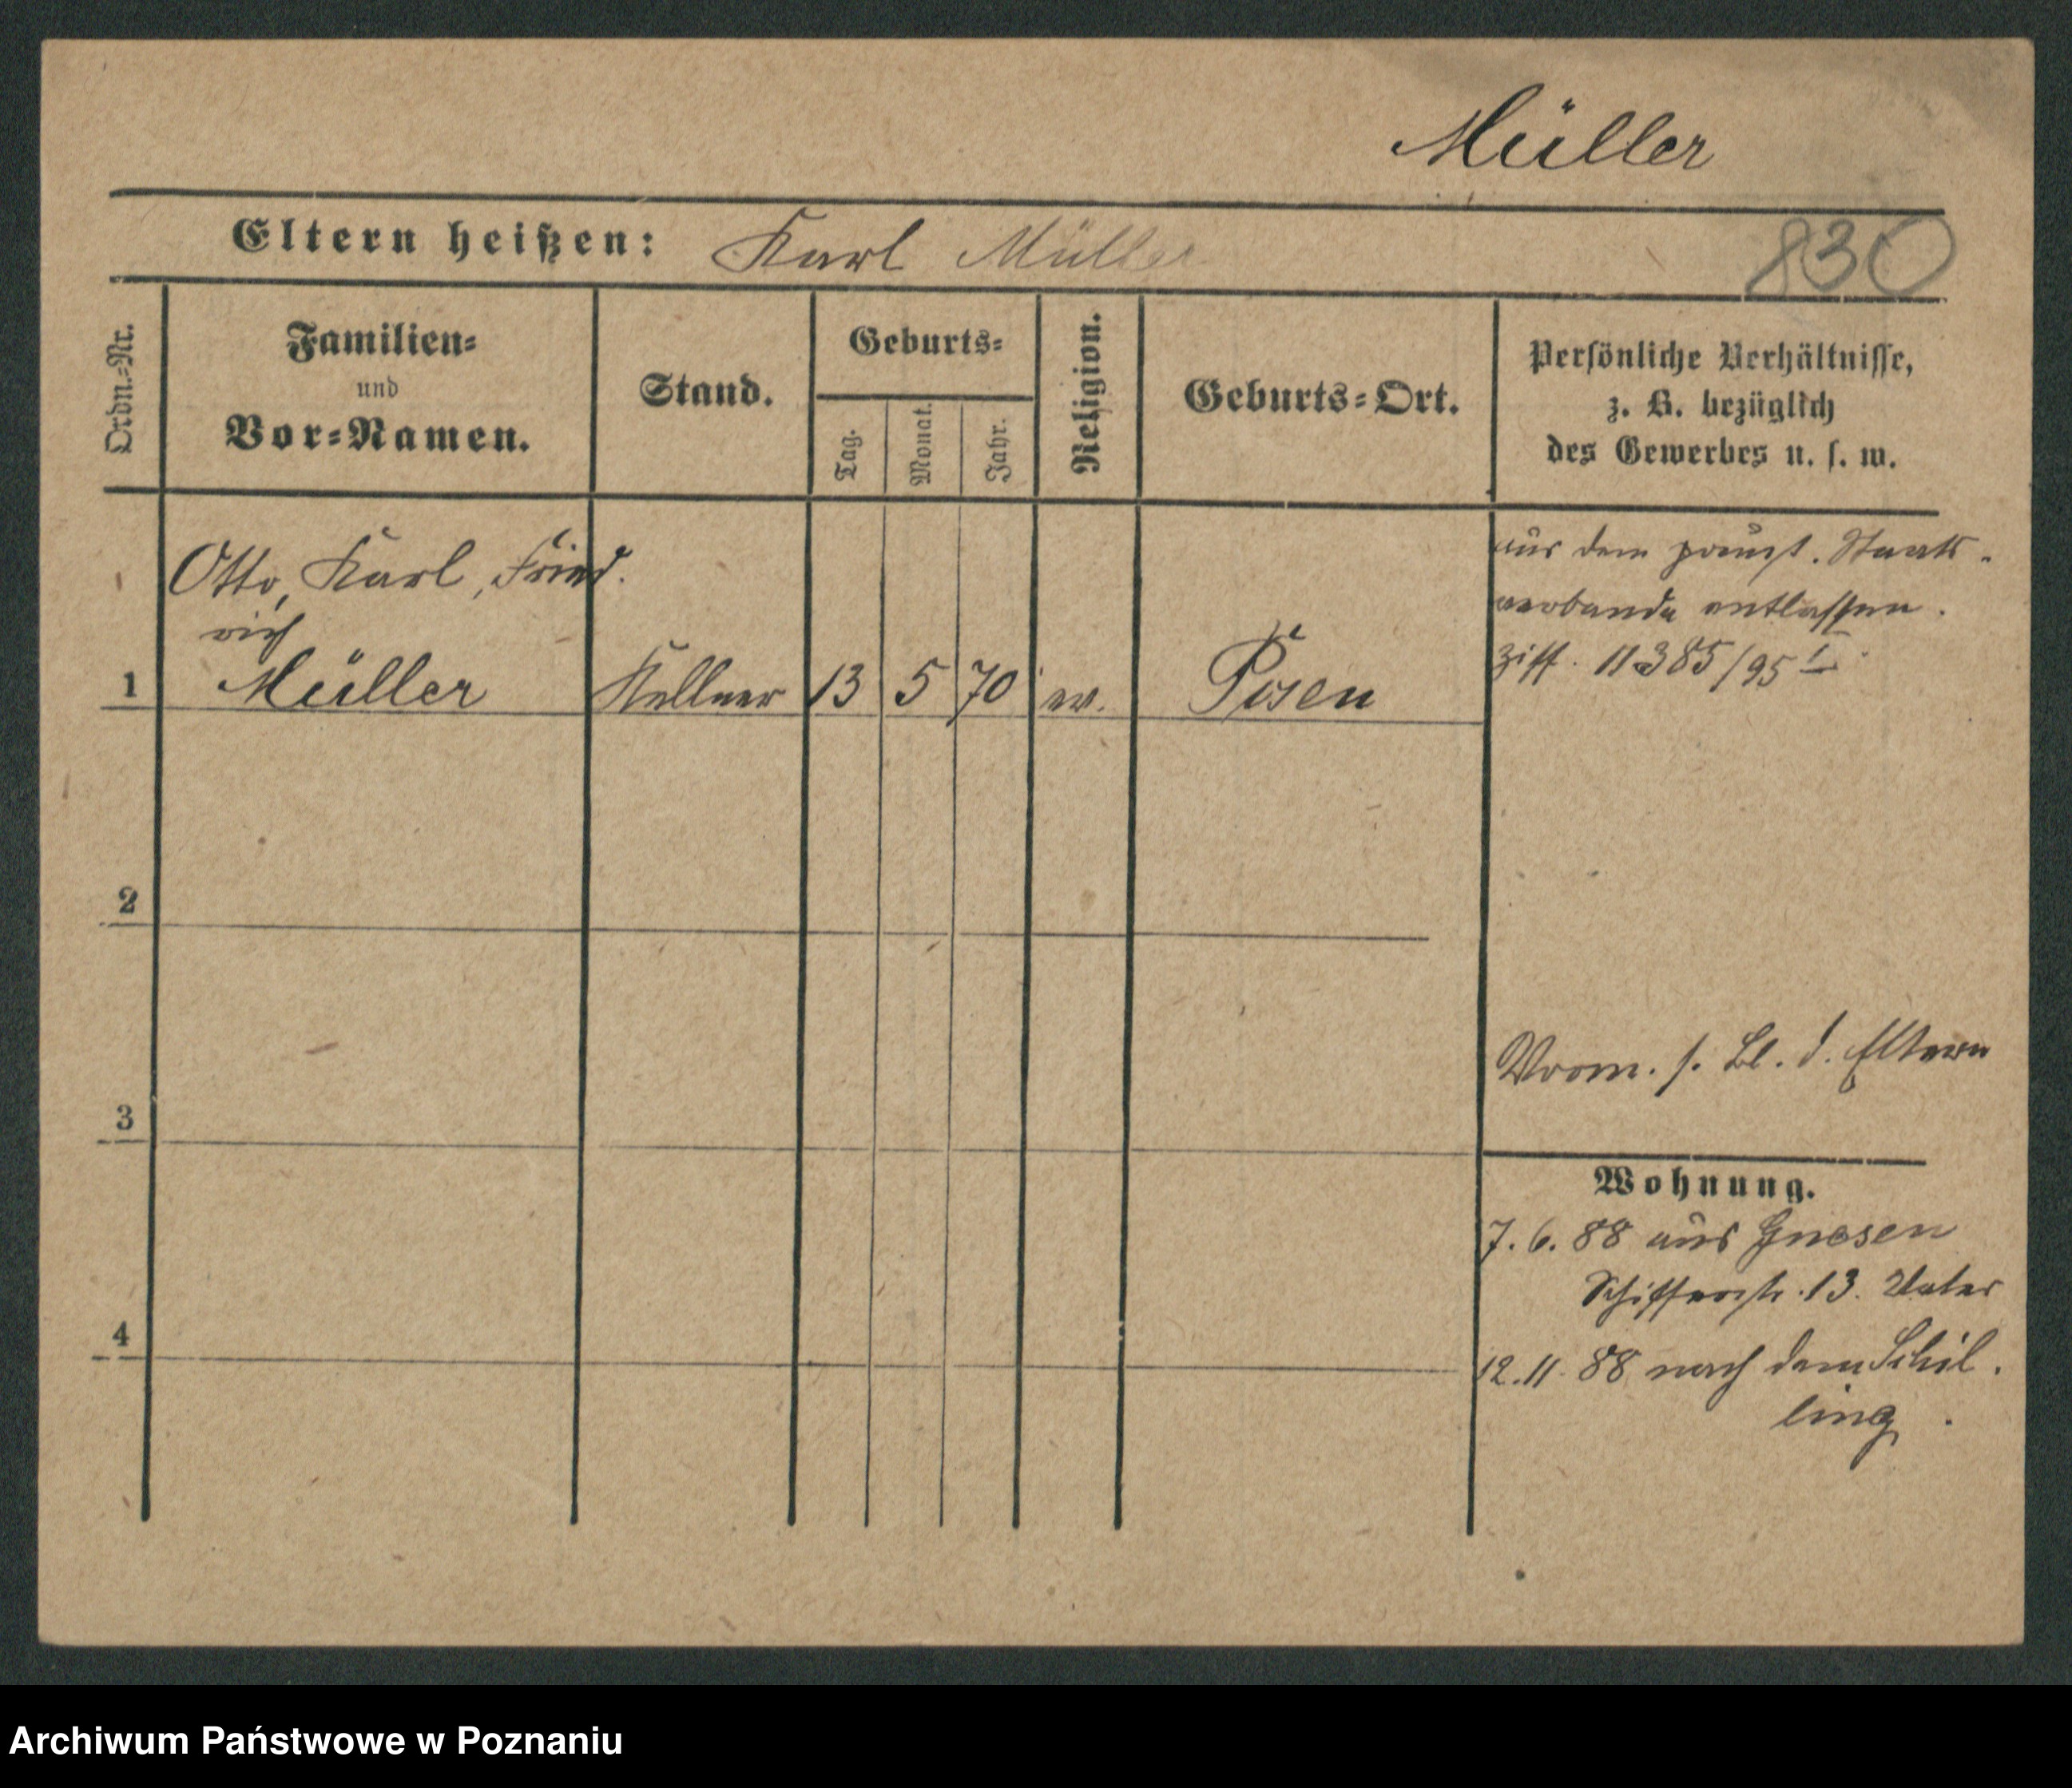 Müller
Eltern heißen: Karl Müller
830
Ordn.-Nr.
Familien-
und
Vor-Namen.
Stand.
Geburts-
Tag.
Monat.
Jahr.
Religion.
Geburts-Ort.
Persönliche Verhältnisse,
z. B. bezüglich
des Gewerbes u. s. w.
Otto, Karl, Fried.
rich
1 Müller Kellner 13 5 70 ev. Posen
aus dem preuß. Staats-
verbande entlassen.
Ziff. 11385/95 I
2
3
Vorm. s. Bl. d. Eltern
Wohnung.
7. 6. 88 aus Gnesen
Schifferstr. 13. Vater
4
12. 11. 88 nach dem Schil.
ling.
Archiwum Państwowe w Poznaniu